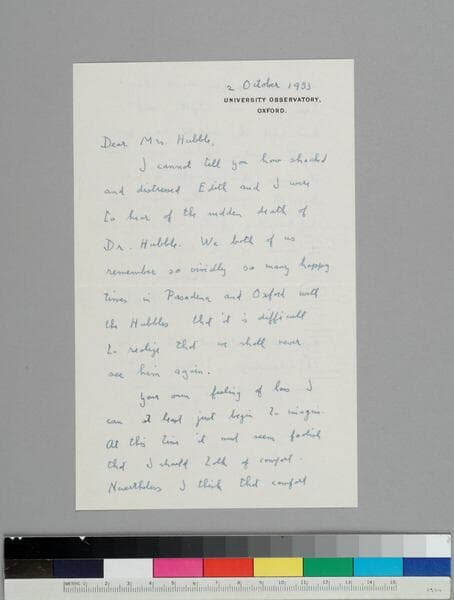 2 October 1953
UNIVERSITY OBSERVATORY,
OXFORD.
Dear Mrs. Hubble,
I cannot tell you how shocked
and distressed Edith and I were
to hear of the sudden death of
Dr. Hubble. We both of us
remember so vividly so many happy
times in Pasadena and Oxford with
the Hubbles that it is difficult
to realize that we shall never
see him again.
Your own feeling of loss I
can at least just begin to imagine.
At this time it must seem foolish
that I should talk of comfort.
Nevertheless I think that comfort
METRIC 1 2 3 4 5 6 7 8 9 10 11 12 13 14 15